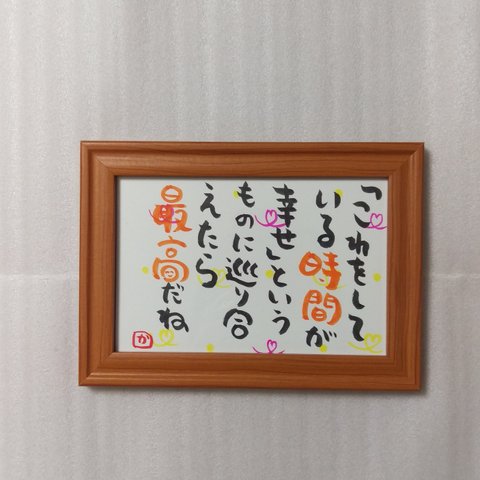 「これをして
いる時間が
幸せ」という
ものに巡り合
えたら
最高だね
か